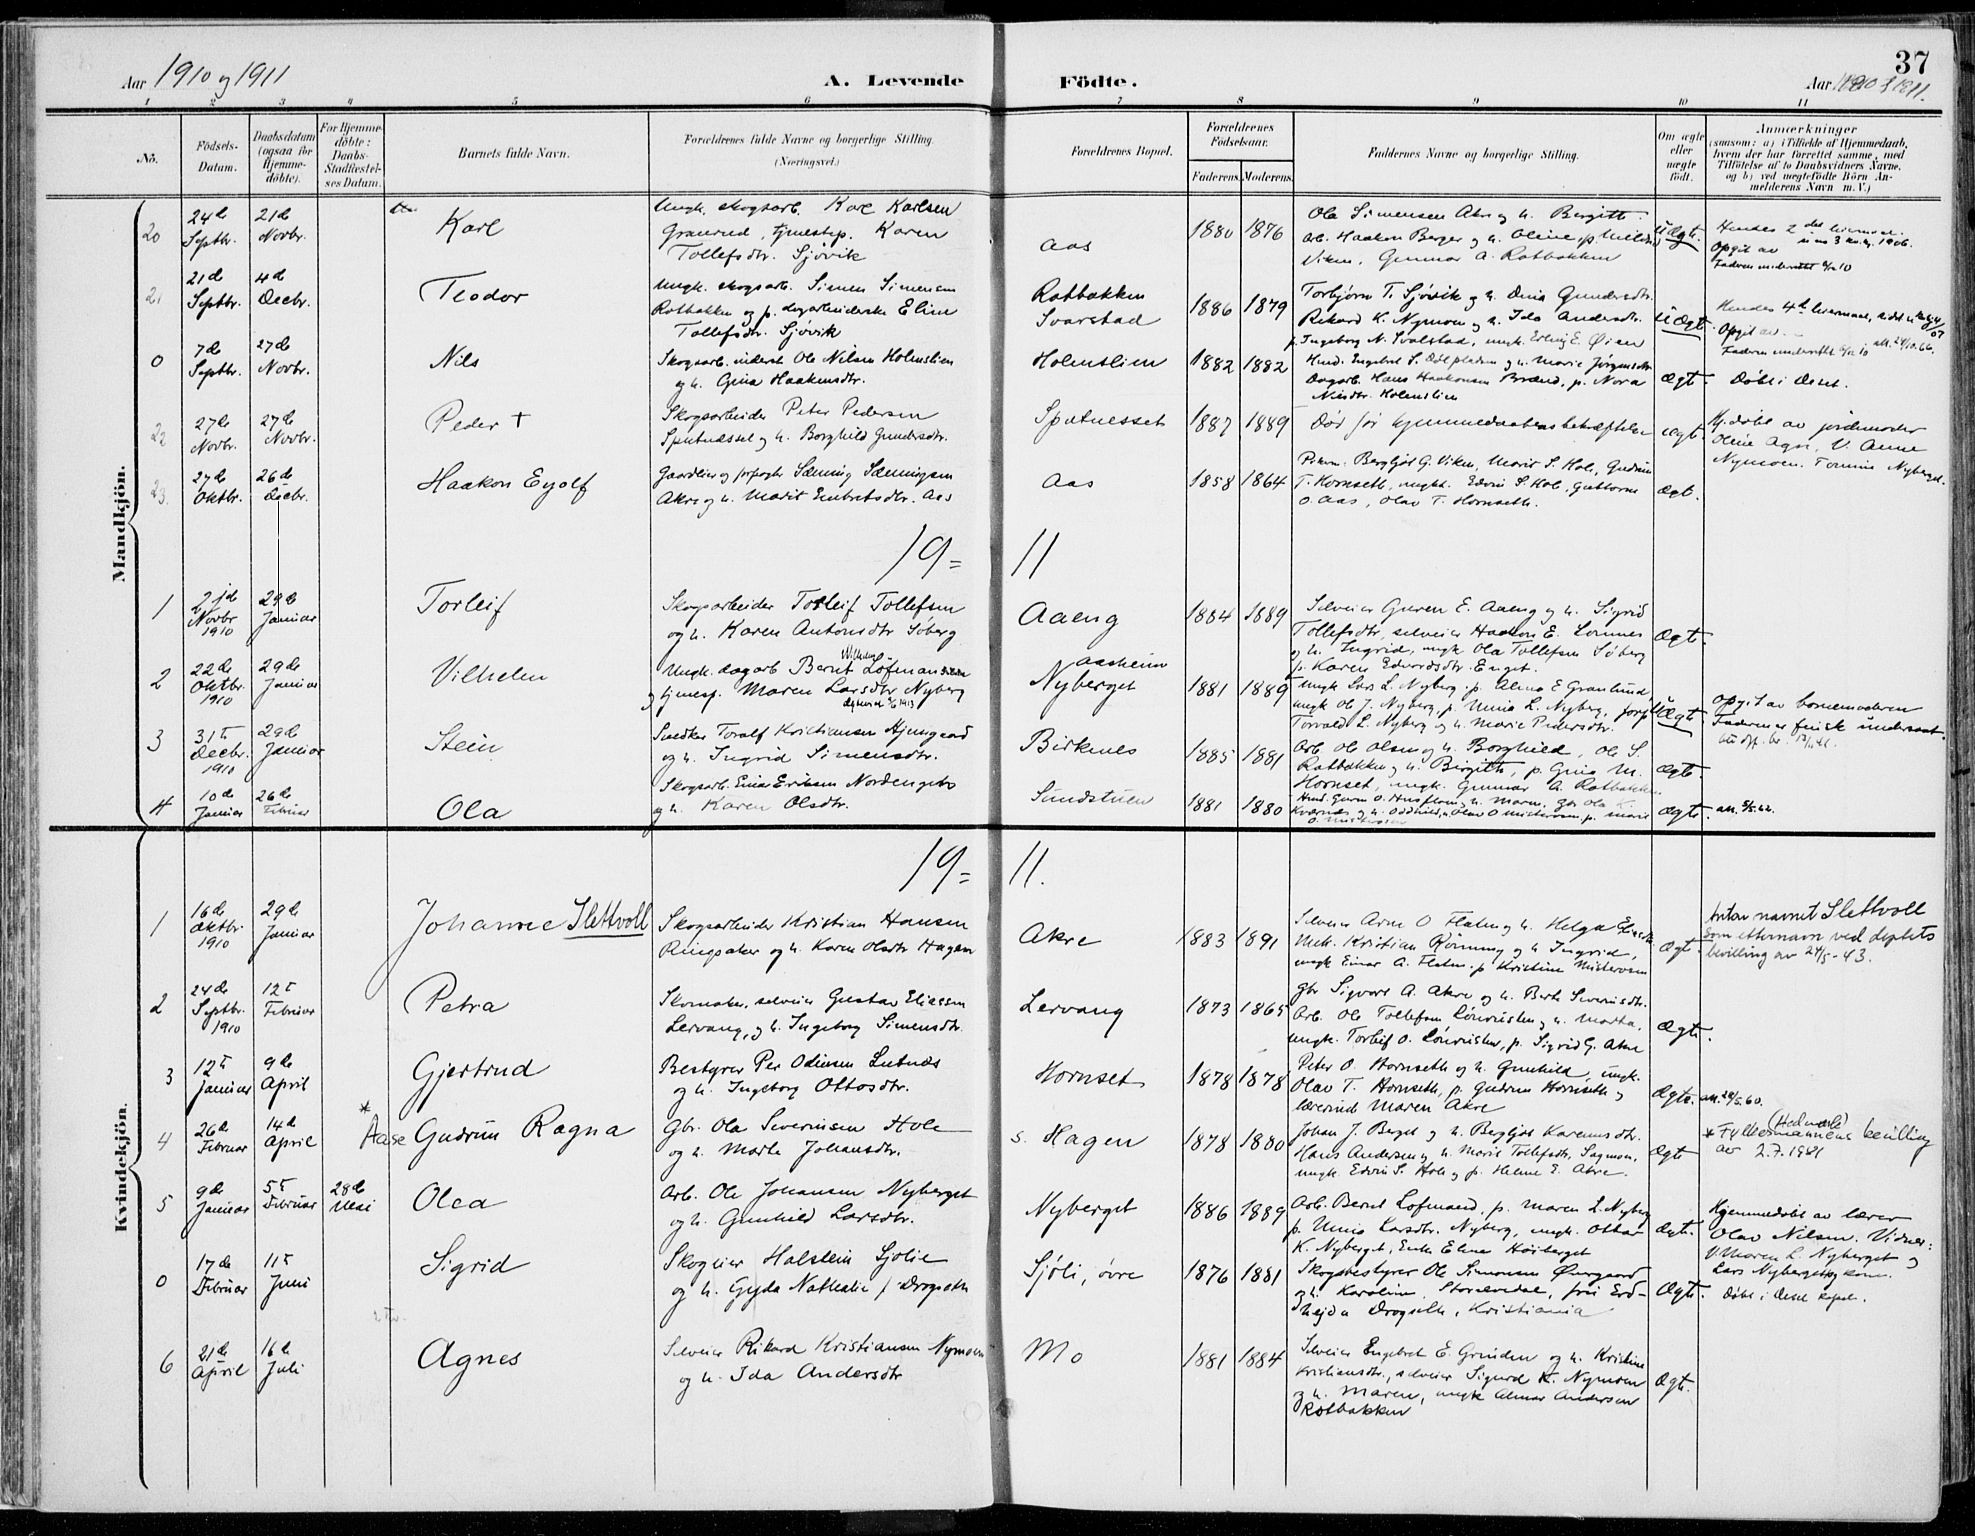 Aar 1910 og 1911
A. Levende
Födte.
37
Aar 1910 & 1911.
1 2 3 4 5 6 7 8 9 10 11
No.
Födsels-
Datum.
Daabsdatum
(ogsaa for
Hjemme-
döbte).
For Hjemme-
döbte:
Daabs-
Stadfæstel-
ses Datum.
Barnets fulde Navn.
Forældrenes fulde Navne og borgerlige Stilling
(Næringsvei.)
Forældrenes Bopæl.
Forældrenes
Födselsaar.
Faderens. Moderens.
Faddernes Navne og borgerlige Stilling.
Om ægte
eller
uægte
födt.
Anmærkninger
(saasom: a) i Tilfælde af Hjemmedaab,
hvem der har forrettet samme, med
Tilföielse af to Daabsvidners Navne.
og b) ved uægtefödte Börn An-
melderens Navn m. V.)
Mandkjön.
20
24de Septbr.
21de Novbr.
Karl
Ungk. skogsarb. Kare Karlsen
Granrud, tjenestep. Karen
Tollefsdtr. Sjövik
Aas
1880 1876
Ola Simensen Akre og h. Bergitte
Arb. Haakon Berger og h. Oline, p.
Viken, Gunnar A. Rotbakken
Uægt.
Opgit av
21
21de Septbr.
4de Decbr.
Teodor
Ungk. skogsarb. Simen Simensen
Rotbakken og p. Eline
Tollefsdtr. Sjövik
Rotbakken
Ivarstad
1886 1879
Torbjörn T. Sjövik og h. Gundersdtr.
Rikard K. Nymoen og h. Ida Andersdtr.
p. Ingeborg N. Svalstad, ungk. Erling E. Øien
Uægt.
Hendes 4de
Opgit av
0
7de Septbr.
27de Novbr.
Nils
Skogsarb. inderst Ole Nilsen Holmslien
og h. Gina Haakensdtr.
Holmslien
1882 1882
og h. Marie Jörgensdtr.
Dagarb. Hans Haakonsen Brænd, p. Nora
Nilsdtr. Holmslien
Ægt.
Döbt i Deset.
22
27de Novbr.
27de Novbr.
Peder +
Skogsarbeider Peter Pedersen
Sputnesset og h. Borghild Gundersdtr.
Sputnesset
1887 1889
Död för hjemmedaabens bekræftelse
Ægt.
Hj. döbt av jordmoder
Oline Agre, V. Anne
Nymoen. Tomine Nyberget.
23
27de Oktbr.
26de Decbr.
Haakon Eyolf
Gaardeier og forpagter Sæming Sæmingsen
Akre og h. Marit Embretsdtr. Aas
Aas
1858 1864
Pikem. Bergljot G. Viken, Marit S. Hole, Gudrun
T. Hornseth, ungk. Edvin S. Hole, Guttorm
O. Aas, Olav T. Hornseth.
Ægt.
19= 11
1
21de Novbr 1910
29de Januar
Torleif
Skogsarbeider Torleif Tollefsen
og h. Karen Antonsdtr Söberg
Aaeng
1884 1889
Selveier Guren E. Aaeng og h. Sigrid
Tollefsdtr, selveier Haakon E. Lomnes
og h. Ingrid, ungk Ola Tollefsen Söberg
p. Karen Edvardsdtr. Enget.
Ægt.
2
22de Oktbr. 1910
29de Januar
Vilhelm
Wilhelm
Ungk. dagarb Bernt Löfman
og tjenesp. Maren Larsdtr Nyberg
Aasheim
Nyberget
1881 1889
Ungk Lars L. Nyberg, p. Alma E Granlund,
ungk Ole J. Nyberg, p. Unnia L. Nyberg,
Torvald L. Nyberg og h. Marie Pedersdtr.
Uægt.
Opgit av barnemoderen
Faderen er finsk undersaat.
3
31t Decbr. 1910
29de Januar
Stein
Snedker Toralf Kristiansen Hjemgaard
og h. Ingrid Simensdtr.
Birkenes
1885 1881
Arb. Ole Olsen og h. Borghild, Ole S.
Rotbakken og h. Birgitte, p. Gina M.
Hornset, ungk. Gunnar A. Rotbakken
Ægt.
4
10de Januar
26de Februar
Ola
Skogsarb. Einar Eriksen Nordengebo
og h. Karen Olsdtr.
Sundstuen
1881 1880
Ægt.
Kvindekjön.
19= 11.
1
16de Oktbr 1910
29de Januar
Johanne Slettvoll
Skogsarbeider Kristian Hansen
Ringsaker og h. Karen Olsdtr Hagen
Akre
1883 1891
Selveier Arne O Flaten og h. Helga
Kristian Rönning og h Ingrid,
ungk Einar A. Flaten. p Kristine Misterosen
Ægt.
Antar navnet Slettvoll
som etternavn ved depts
bevilling av 24/5-43.
2
24de Septbr. 1910
12t Februar
Petra
Skomaker, selveier Gustav Eliassen
Lervang, og h. Ingeborg Simensdtr.
Lervang
1873 1865
Gbr Sigvart A. Akre og h. Berte Severinsdtr.
Arb. Ole Tollefsen og h. Marta,
ungk. Torleif O. p. Sigrid G. Akre
Ægt.
3
12t Januar
9de April
Gjertrud
Bestyrer Per Odinsen Lutnæs
og h. Ingeborg Ottosdtr.
Hornset
1878 1878
Peter O. Hornseth og h. Gunhild, ungk.
Olav T. Hornseth, p. Gudrun Hornseth og
lærerinde Maren Akre
Ægt.
4
26de Februar
14de April
*
Aase Gudrun Ragna
Gbr. Ola Severinsen Hole
og h. Marte Johansdtr.
s. Hagen
1878 1880
Johan J. Berget og h. Bergljot Karensdtr.
Hans Andersen og h. Marit Tollefsdtr. Sagmoen,
ungk. Edvin S. Hole og p. Helene E. Akre.
Ægt
(Hedmark)
* Fylkesmannens bevilling
av 2.7.1981
5
9de Januar
5t Februar
28de Mai
Olea
Arb. Ole Johansen Nyberget
og h. Gunhild Larsdtr.
Nyberget
1886 1889
Arb. Bernt Löfmand, p. Maren L. Nyberg
p. Unnia Larsdtr. Nyberg, ungk. Ottar
K. Nyberget, Enke Elene Höiberget
Ægt.
Hjemmedöbt av lærer
Olav Nilsen. Vidner:
Maren L. Nyberget og
Lars Nyberget
0
17de Februar
11t Juni
Sigrid
Skogeier Halstein Sjölie
og h. Gyda Nathalie f. Drogseth
Sjöli, övre
1876 1881
Skogbestyrer Ole Simonsen Øvergaard
og h. Karoline, Storelvedal, frøi
Drogseth, Kristiania
Ægt.
Döbt i Deset kapel.
6
21de April
16de Juli
Agnes
Selveier Rikard Kristiansen Nymoen
og h. Ida Andersdtr
Mo
1881 1884
Selveier Engebret E. Grinden og h. Kristine
Kristiansdtr., selveier Sigurd K. Nymoen
og h. Maren, ungk Almar Andersen
Rotbakken
Ægt.